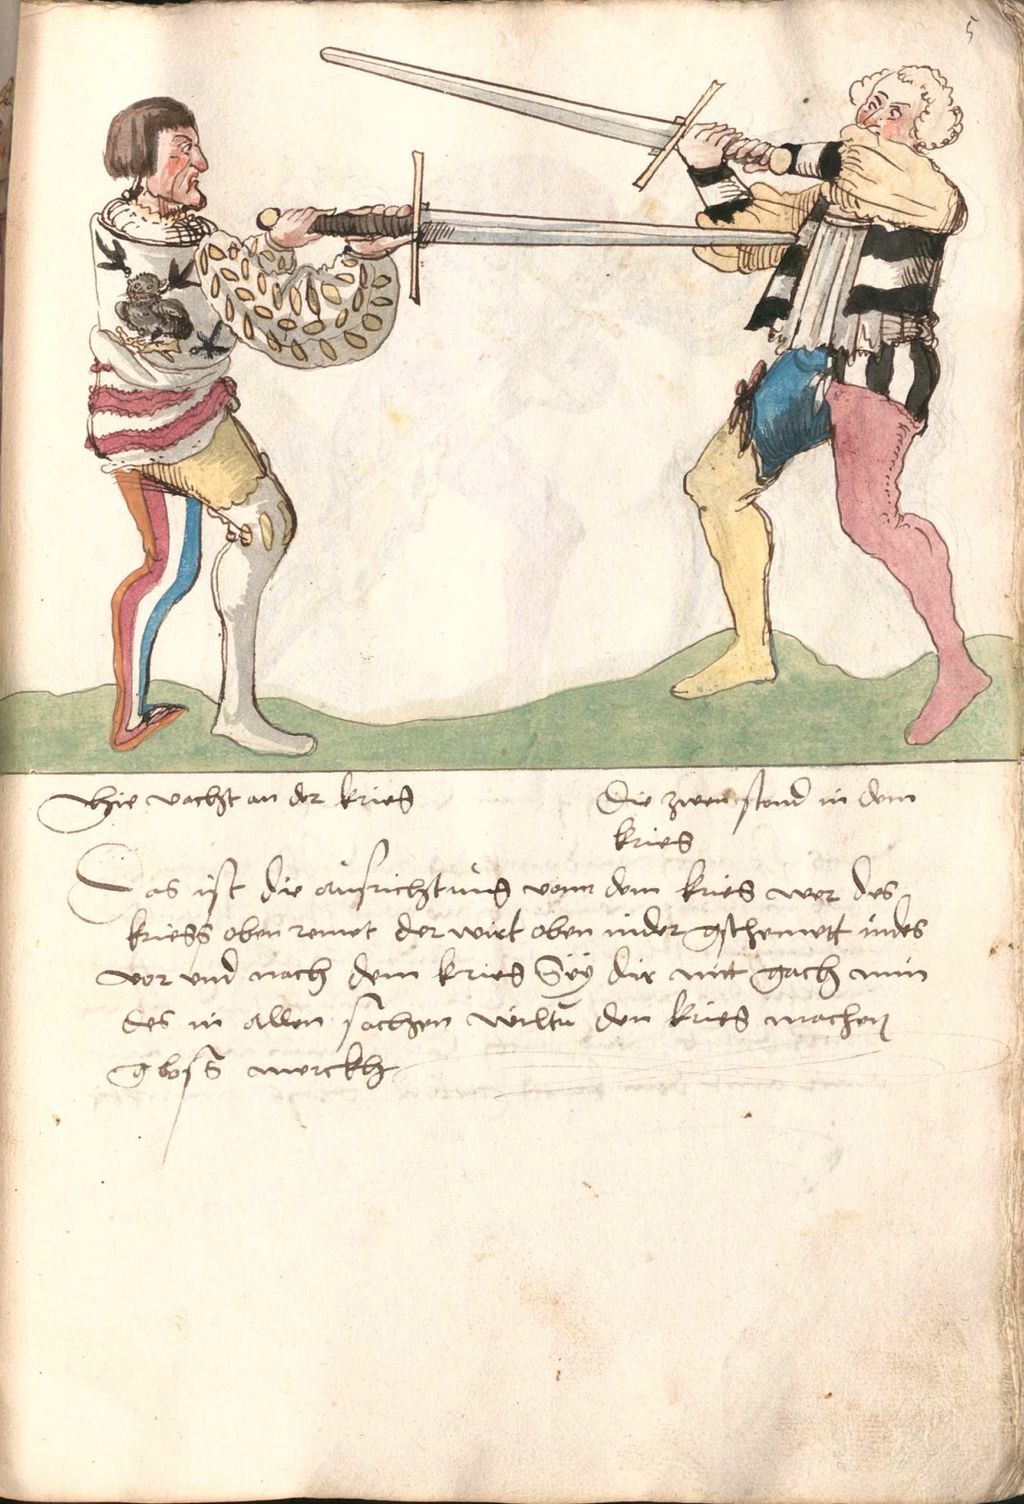 5
Hie vacht an der krieg
Die zwen stond in dem
krieg
Das ist die ausrichtung vonn dem krieg wer des
kriegs oben remet der wirt oben nider gschemett indes
vor und nach dem krieg Sÿÿ dir nitt gach nim
des in allen sachen wiltu den krieg machen
glosß merckh